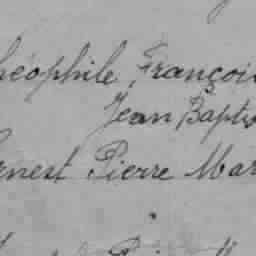 héophile, Françoi
Jean Baptis
rnest Pierre Mar